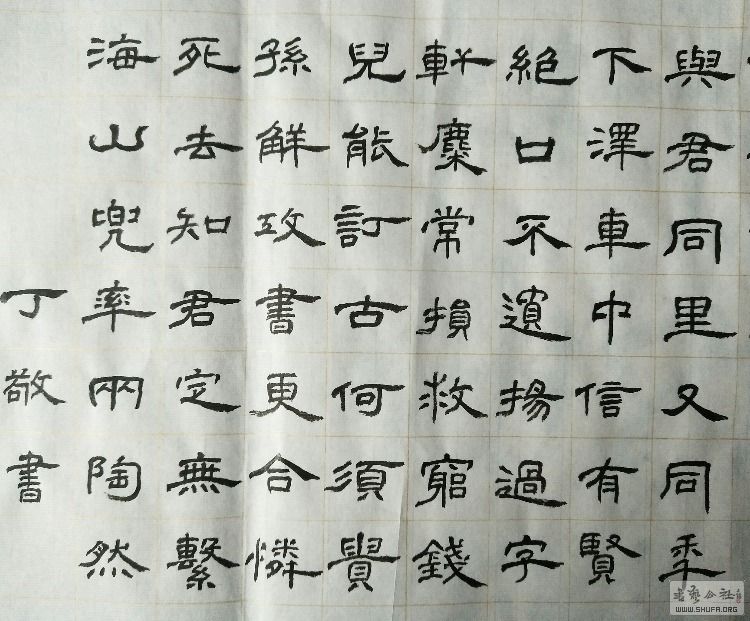 與君同里又同年
下澤車中信有賢
絕口不遺揚過字
軒麋常損救窮錢
兒能訂古何須貴
孫解攻書更合憐
死去知君定無繫
海山兜率兩陶然
丁敬書
WWW.SHUFA.ORG